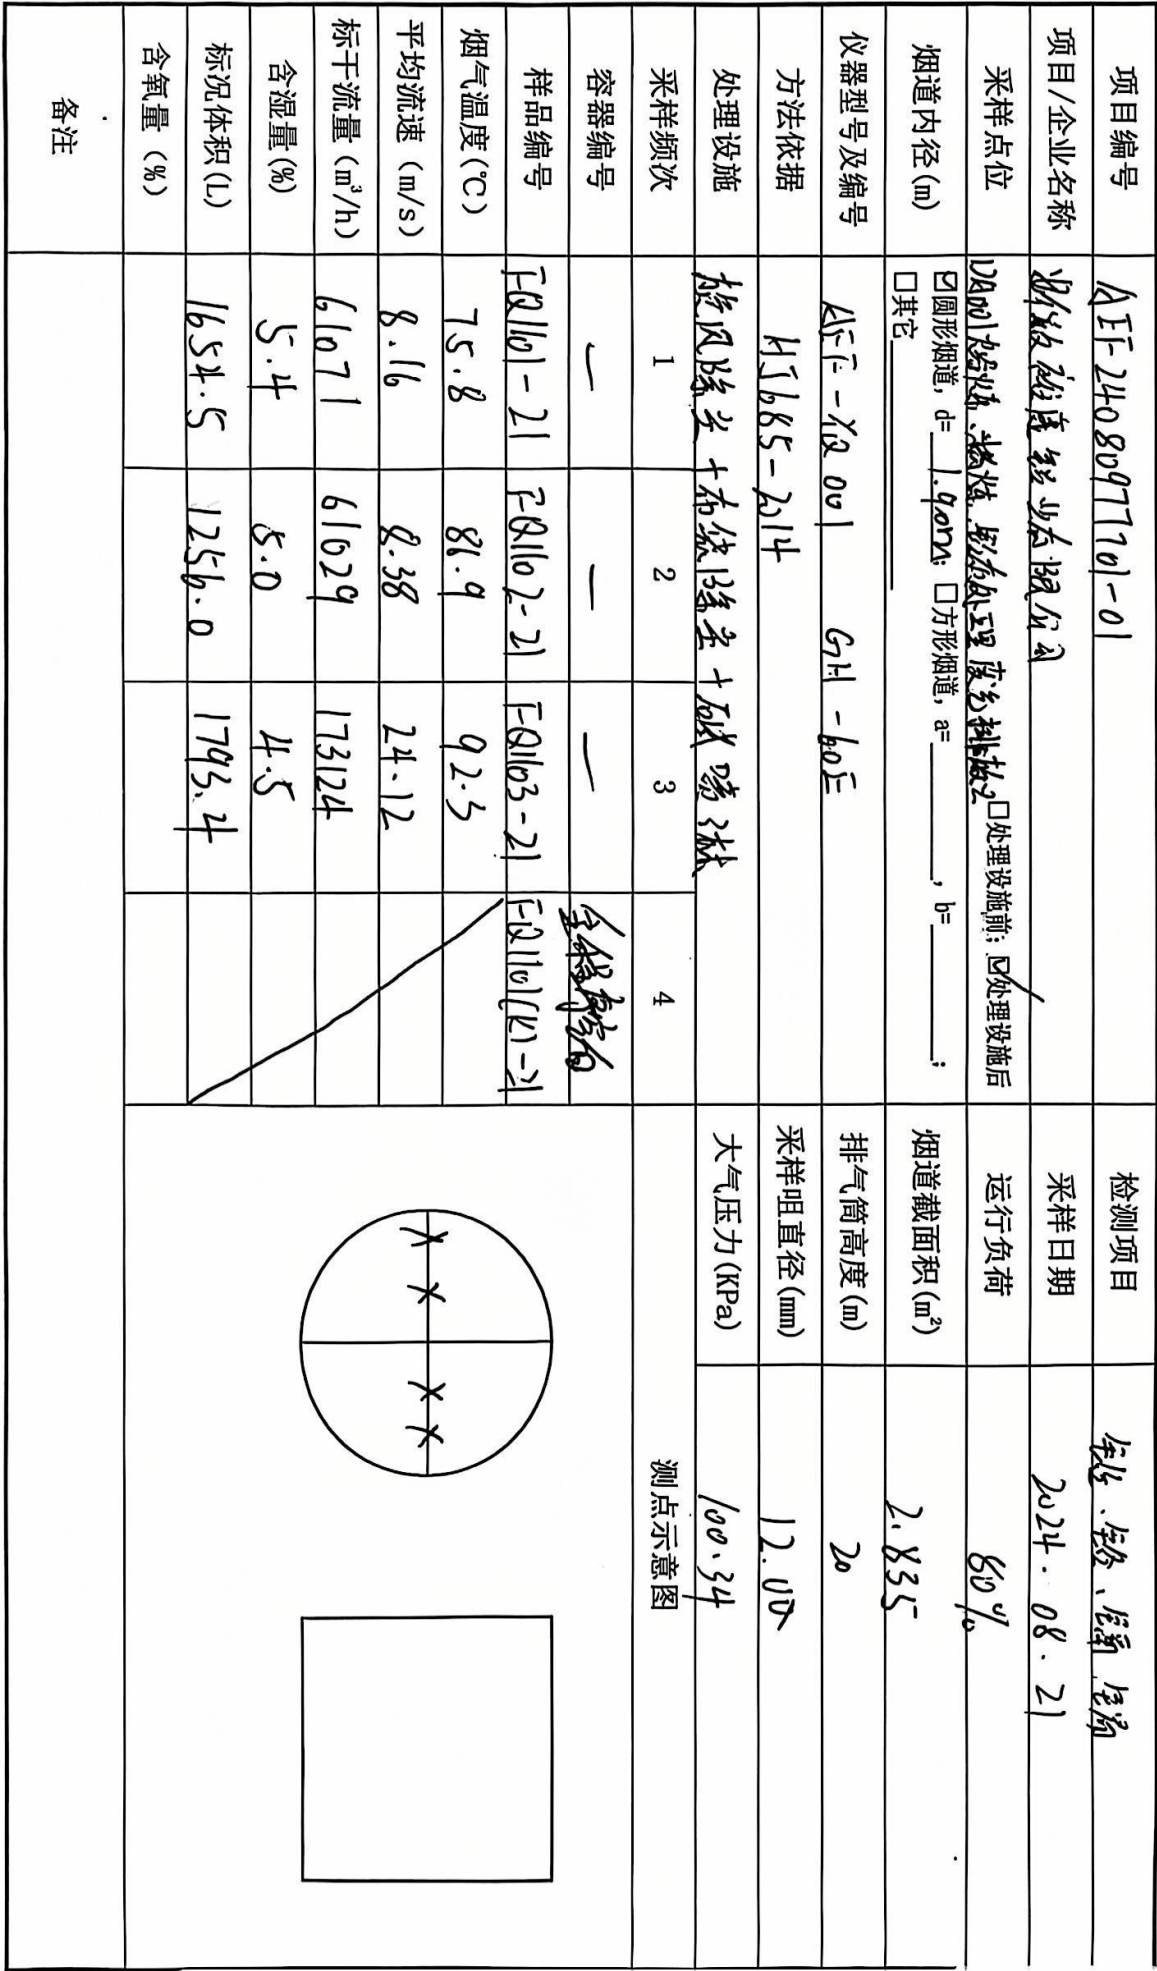 项目编号 AFF-24080977701-01 检测项目 铊、铬、镉
项目/企业名称 有限公司 采样日期 2024.08.21
采样点位 DA001 □处理设施前; ☑处理设施后 运行负荷 80%
烟道内径(m) ☑圆形烟道, d= 1.90m; □方形烟道, a= , b= ; 烟道截面积(m²) 2.835
□其它
仪器型号及编号 AFF-YQ001 GH-60E 排气筒高度(m) 20
方法依据 HJ685-2014 采样咀直径(mm) 12.00
处理设施 旋风除尘+布袋除尘+碱喷淋 大气压力(KPa) 100.34
采样频次 1 2 3 4 测点示意图
容器编号 — — — 全程序空白
样品编号 FQ1101-21 FQ1102-21 FQ1103-21 FQ1101(K)-21
烟气温度(℃) 75.8 86.9 92.3
平均流速(m/s) 8.16 8.38 24.12
标干流量(m³/h) 61071 61029 173124
含湿量(%) 5.4 5.0 4.5
标况体积(L) 1654.5 1256.0 1793.4
含氧量(%)
备注